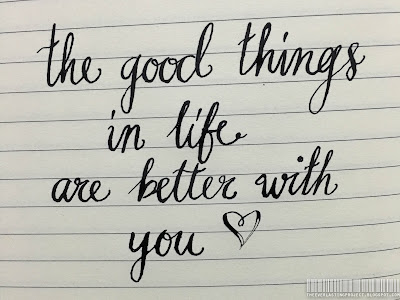 the good things
in life
are better with
you ♡
THEEVERLASTINGPROJECT.BLOGSPOT.COM